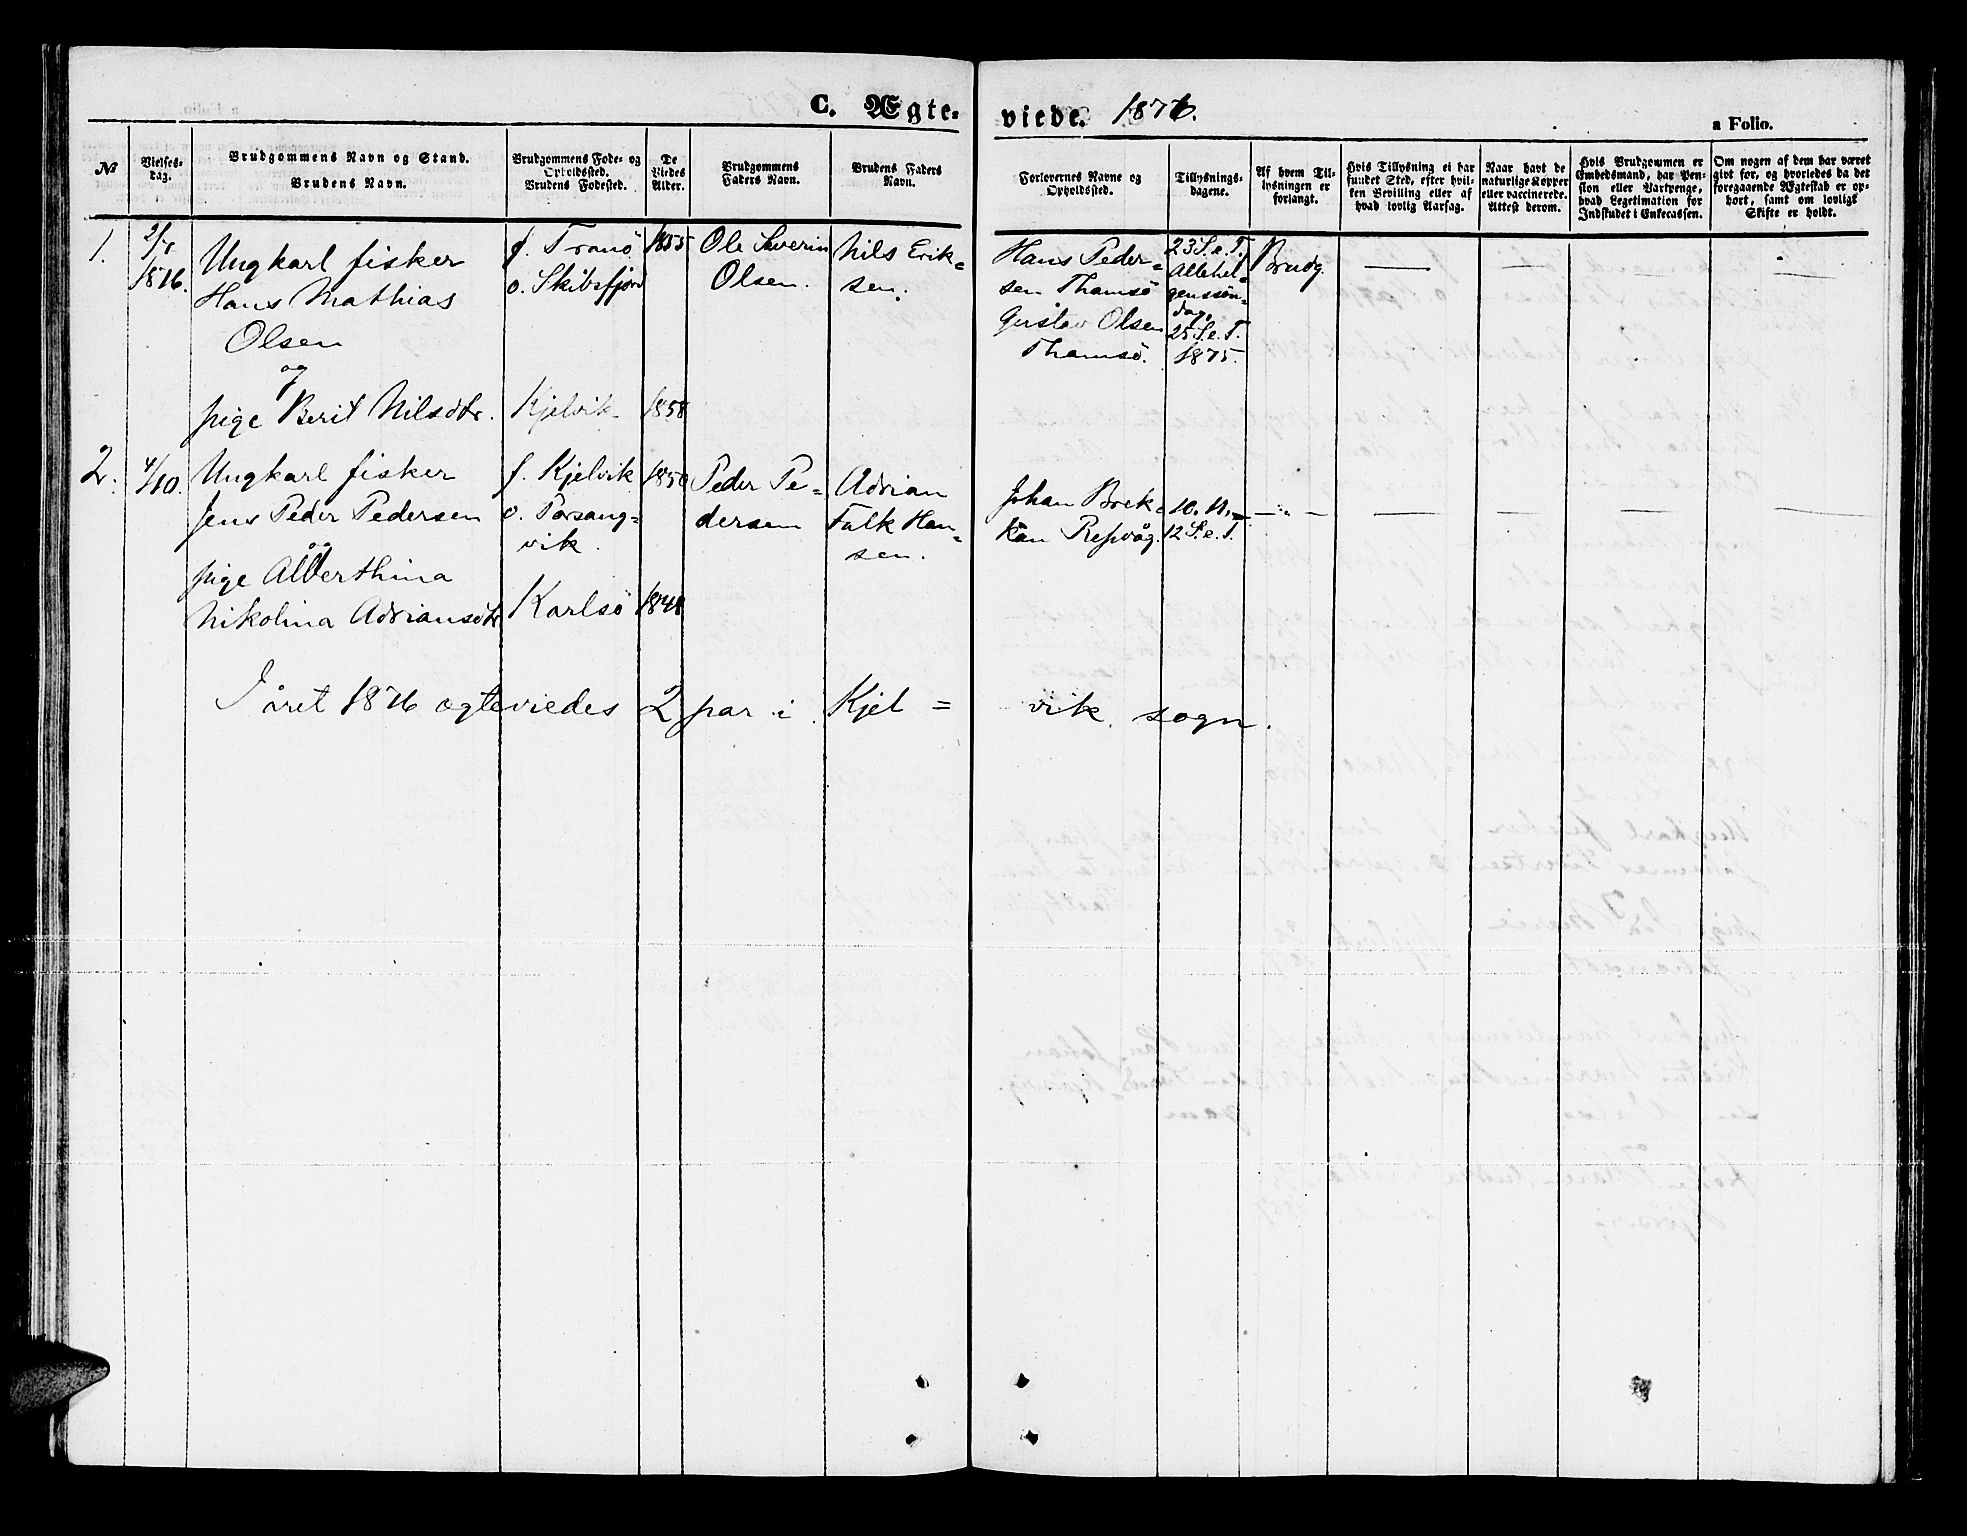 C. Ægte-
viede. 1876.
a Folio.
№
Vielses-
dag.
Brudgommens Navn og Stand.
Brudens Navn.
Brudgommens Føde- og
Opholdssted.
Brudens Fødested.
De
Viedes
Alder.
Brudgommens
Faders Navn.
Brudens Faders
Navn.
Forlovernes Navne og
Opholdssted.
Tillysnings-
dagene.
Af hvem Til-
lysningen er
forlangt.
Hvis Tillysning ei har
fundet Sted, efter hvil-
ken Bevilling eller af
hvad lovlig Aarsag.
Naar havt de
naturlige Kopper
eller vaccinerede.
Attest derom.
Hvis Brudgommen er
Embedsmand, har Pen-
sion eller Vartpenge,
hvad Legetimation for
Indskudet i Enkecassen.
Om nogen af dem har været
givt før, og hvorledes da det
foregaaende Ægteskab er op-
hørt, samt om lovligt
Skifte er holdt.
1.
2/1
1876.
Ungkarl fisker
Hans Mathias
Olsen
og
pige Berit Nilsdtr.
f. Tranö
o. Skibsfjord
Kjelvik
1855
1858
Ole Severin
Olsen.
Nils Erik=
sen.
Hans Peder=
sen Thamsö
Gustav Olsen
Thamsö.
23 S. e. T.
Allehel=
genssøn=
dag,
25 S. e. T.
1875.
Brudg.
2.
4/10.
Ungkarl fisker
Jens Peder Pedersen
og
pige Alberthina
Nikolina Adriansdtr
f. Kjelvik
o. Porsang=
vik.
Karlsö
1850
1848
Peder Pe=
dersen
Adrian
Falk Han=
sen.
Johan Brek=
kan Repvåg.
10. 11. –
12 S. e. T.
— „ —
I året 1876 ægteviedes 2 par i Kjel=
vik sogn.